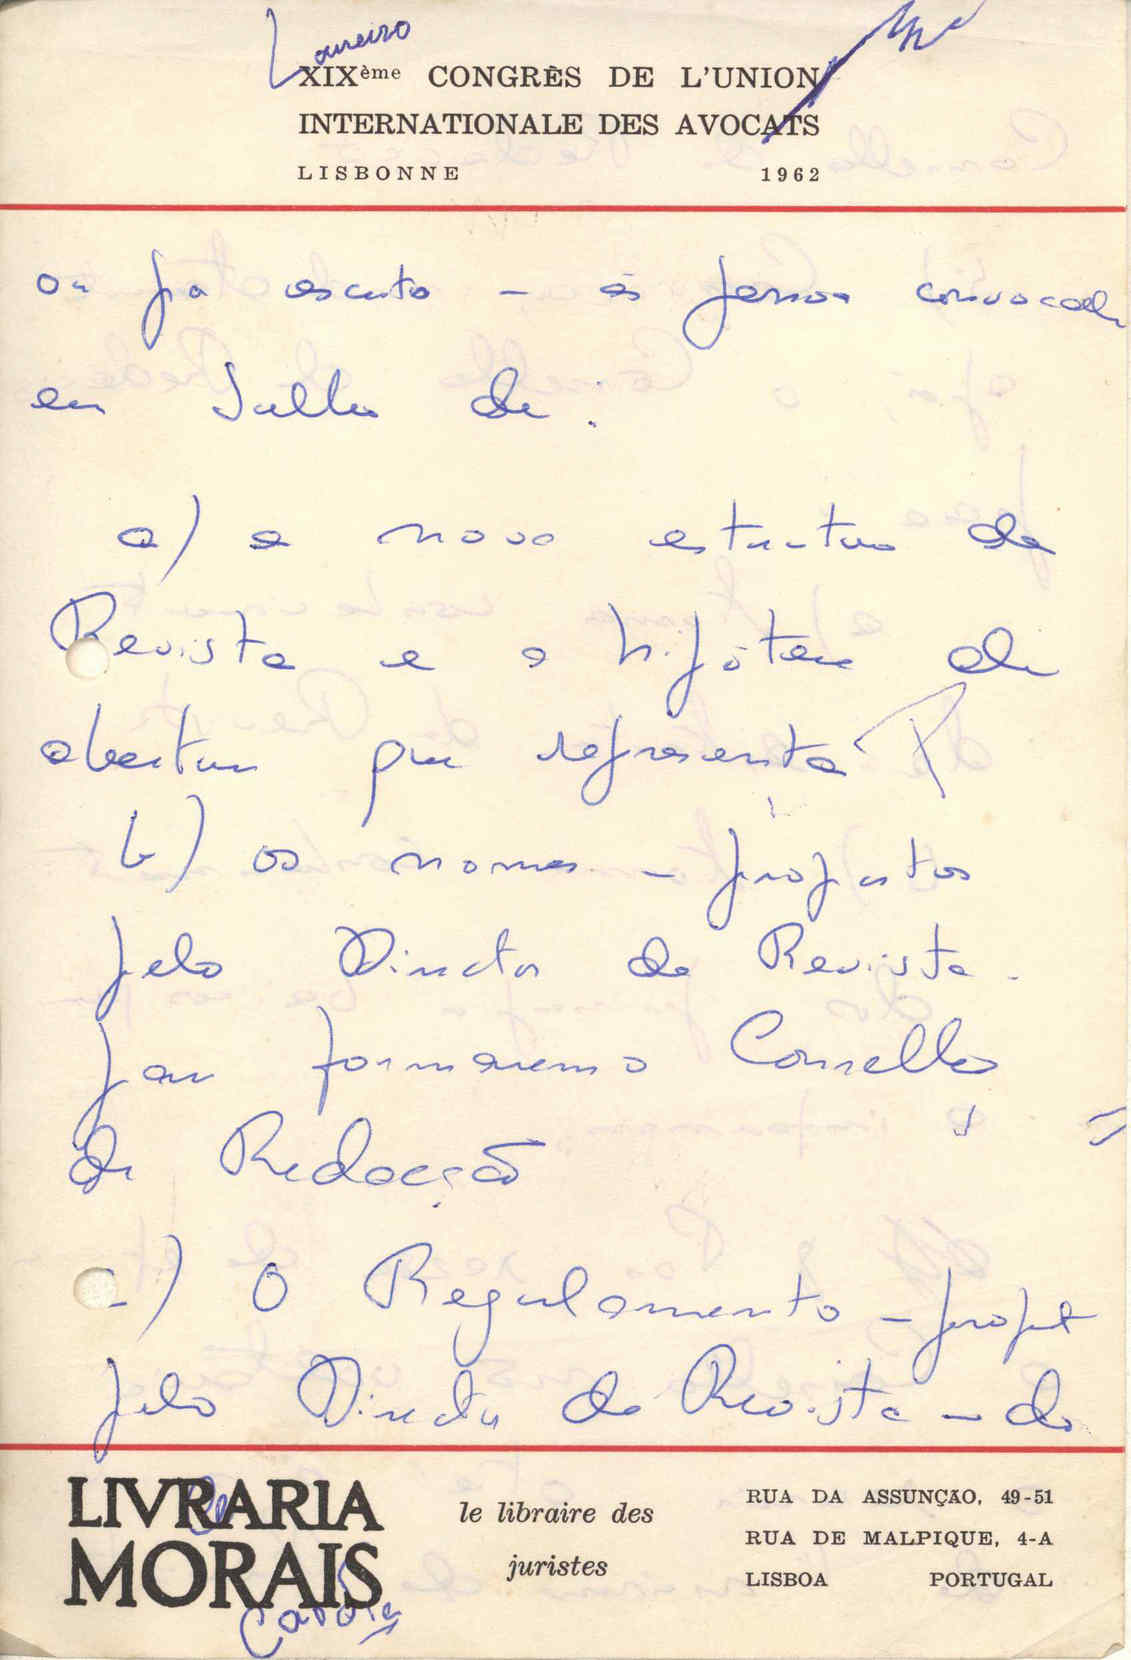 Loureiro
XIXème CONGRÈS DE L'UNION
INTERNATIONALE DES AVOCATS
LISBONNE 1962
ou por escrito — às pessoas convocadas
em Julho de:
a) a nova estrutura da
Revista e a hipótese de
abertura
b) os nomes — propostos
pelo Director da Revista —
para formarem o Conselho
de Redacção
c) O Regulamento — proposto
pelo Director da Revista — do
LIVRARIA
MORAIS
le libraire des
juristes
RUA DA ASSUNÇÃO, 49-51
RUA DE MALPIQUE, 4-A
LISBOA PORTUGAL